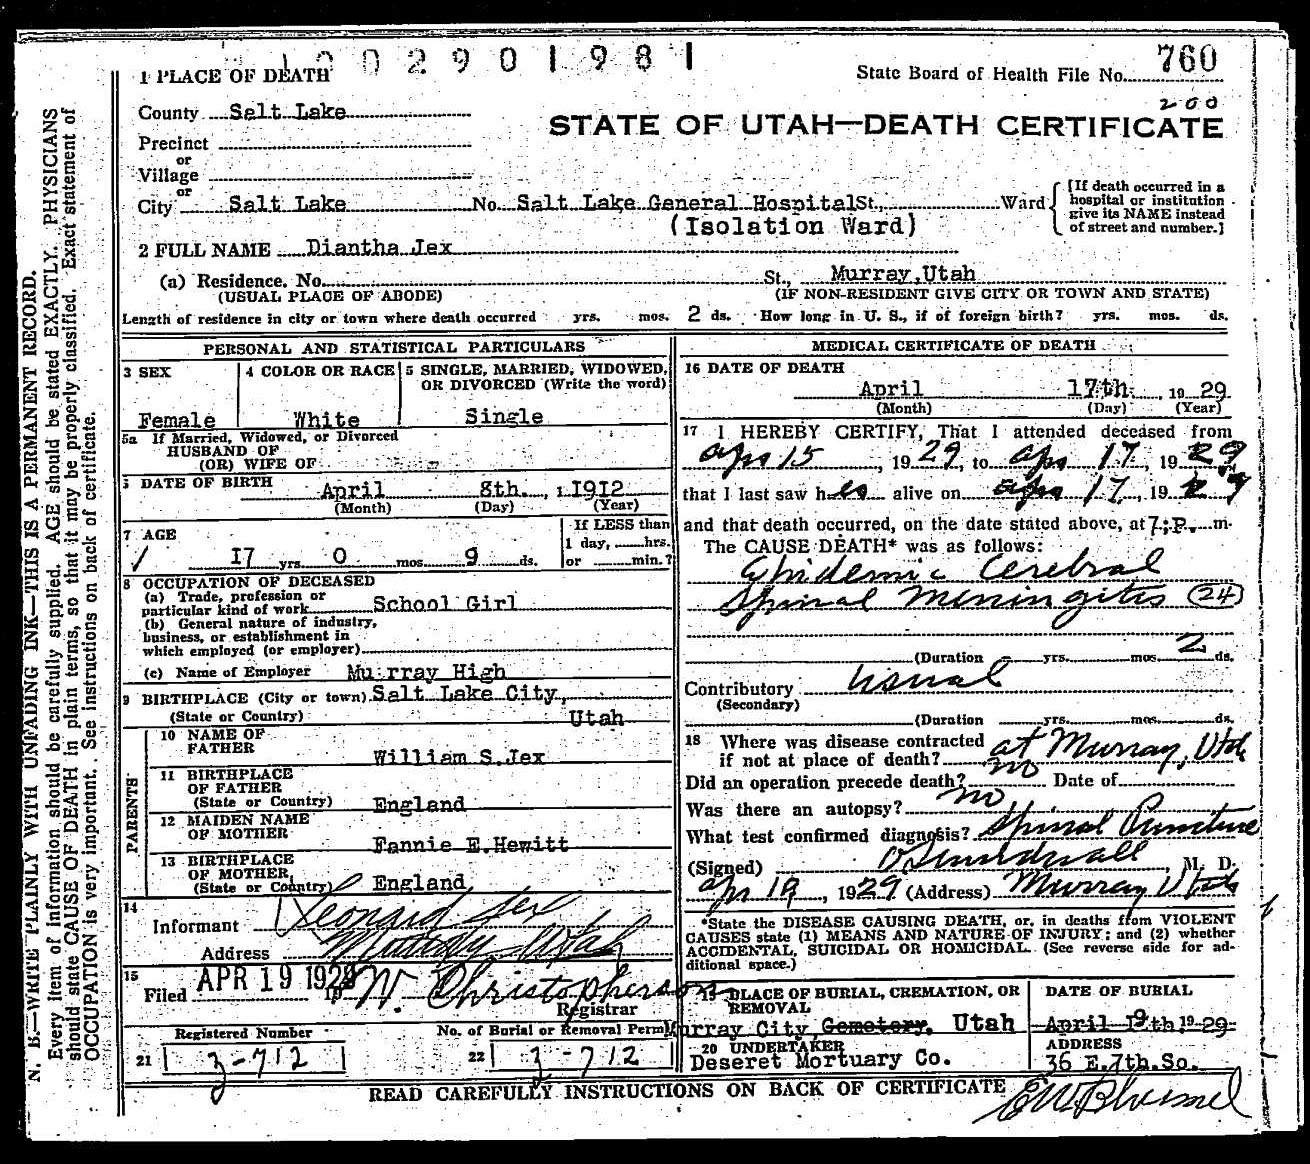 1 0 0 2 9 0 1 9 8 1
760
1 PLACE OF DEATH
State Board of Health File No.
200
County Salt Lake
STATE OF UTAH—DEATH CERTIFICATE
Precinct
or
Village
or
City Salt Lake No. Salt Lake General Hospital St., Ward
[If death occurred in a
hospital or institution
give its NAME instead
of street and number.]
(Isolation Ward)
2 FULL NAME Diantha Jex
(a) Residence. No. St., Murray, Utah
(USUAL PLACE OF ABODE) (IF NON-RESIDENT GIVE CITY OR TOWN AND STATE)
Length of residence in city or town where death occurred yrs. mos. 2 ds. How long in U. S., if of foreign birth? yrs. mos. ds.
PERSONAL AND STATISTICAL PARTICULARS
3 SEX
Female
4 COLOR OR RACE
White
5 SINGLE, MARRIED, WIDOWED,
OR DIVORCED (Write the word)
Single
5a If Married, Widowed, or Divorced
HUSBAND OF
(OR) WIFE OF
DATE OF BIRTH April 8th. 1912
(Month) (Day) (Year)
7 AGE
17 yrs. 0 mos. 9 ds.
If LESS than
1 day, hrs.
or min.?
8 OCCUPATION OF DECEASED
(a) Trade, profession or
particular kind of work School Girl
(b) General nature of industry,
business, or establishment in
which employed (or employer)
(c) Name of Employer Murray High
9 BIRTHPLACE (City or town) Salt Lake City,
(State or Country) Utah
PARENTS
10 NAME OF
FATHER William S. Jex
11 BIRTHPLACE
OF FATHER
(State or Country) England
12 MAIDEN NAME
OF MOTHER Fannie E. Hewitt
13 BIRTHPLACE
OF MOTHER
(State or Country) England
14
Informant Leonard Jex
Address Murray, Utah
15
Filed APR 19 1929 W. Christopherson
Registrar
Registered Number No. of Burial or Removal Permit
21 3-712 22 3-712
MEDICAL CERTIFICATE OF DEATH
16 DATE OF DEATH
April 17th. 1929
(Month) (Day) (Year)
17 I HEREBY CERTIFY, That I attended deceased from
Apr 15, 1929, to Apr 17, 1929
that I last saw her alive on Apr 17, 1929
and that death occurred, on the date stated above, at 7:P. m.
The CAUSE DEATH* was as follows:
Epidemic Cerebral
Spinal Meningitis (24)
(Duration yrs. mos. 2 ds.
Contributory usual
(Secondary)
(Duration yrs. mos. ds.
18 Where was disease contracted
if not at place of death? at Murray, Utah
Did an operation precede death? no Date of
Was there an autopsy? no
What test confirmed diagnosis? Spinal Puncture
(Signed) M. D.
Apr 19, 1929 (Address) Murray Utah
*State the DISEASE CAUSING DEATH, or, in deaths from VIOLENT
CAUSES state (1) MEANS AND NATURE OF INJURY; and (2) whether
ACCIDENTAL, SUICIDAL OR HOMICIDAL. (See reverse side for ad-
ditional space.)
19 PLACE OF BURIAL, CREMATION, OR
REMOVAL
Murray City Cemetery. Utah
DATE OF BURIAL
April 19th 1929
20 UNDERTAKER
Deseret Mortuary Co.
ADDRESS
36 E. 7th. So.
READ CAREFULLY INSTRUCTIONS ON BACK OF CERTIFICATE
N. B.—WRITE PLAINLY WITH UNFADING INK—THIS IS A PERMANENT RECORD.
Every item of information should be carefully supplied. AGE should be stated EXACTLY. PHYSICIANS
should state CAUSE OF DEATH in plain terms, so that it may be properly classified. Exact statement of
OCCUPATION is very important. See instructions on back of certificate.